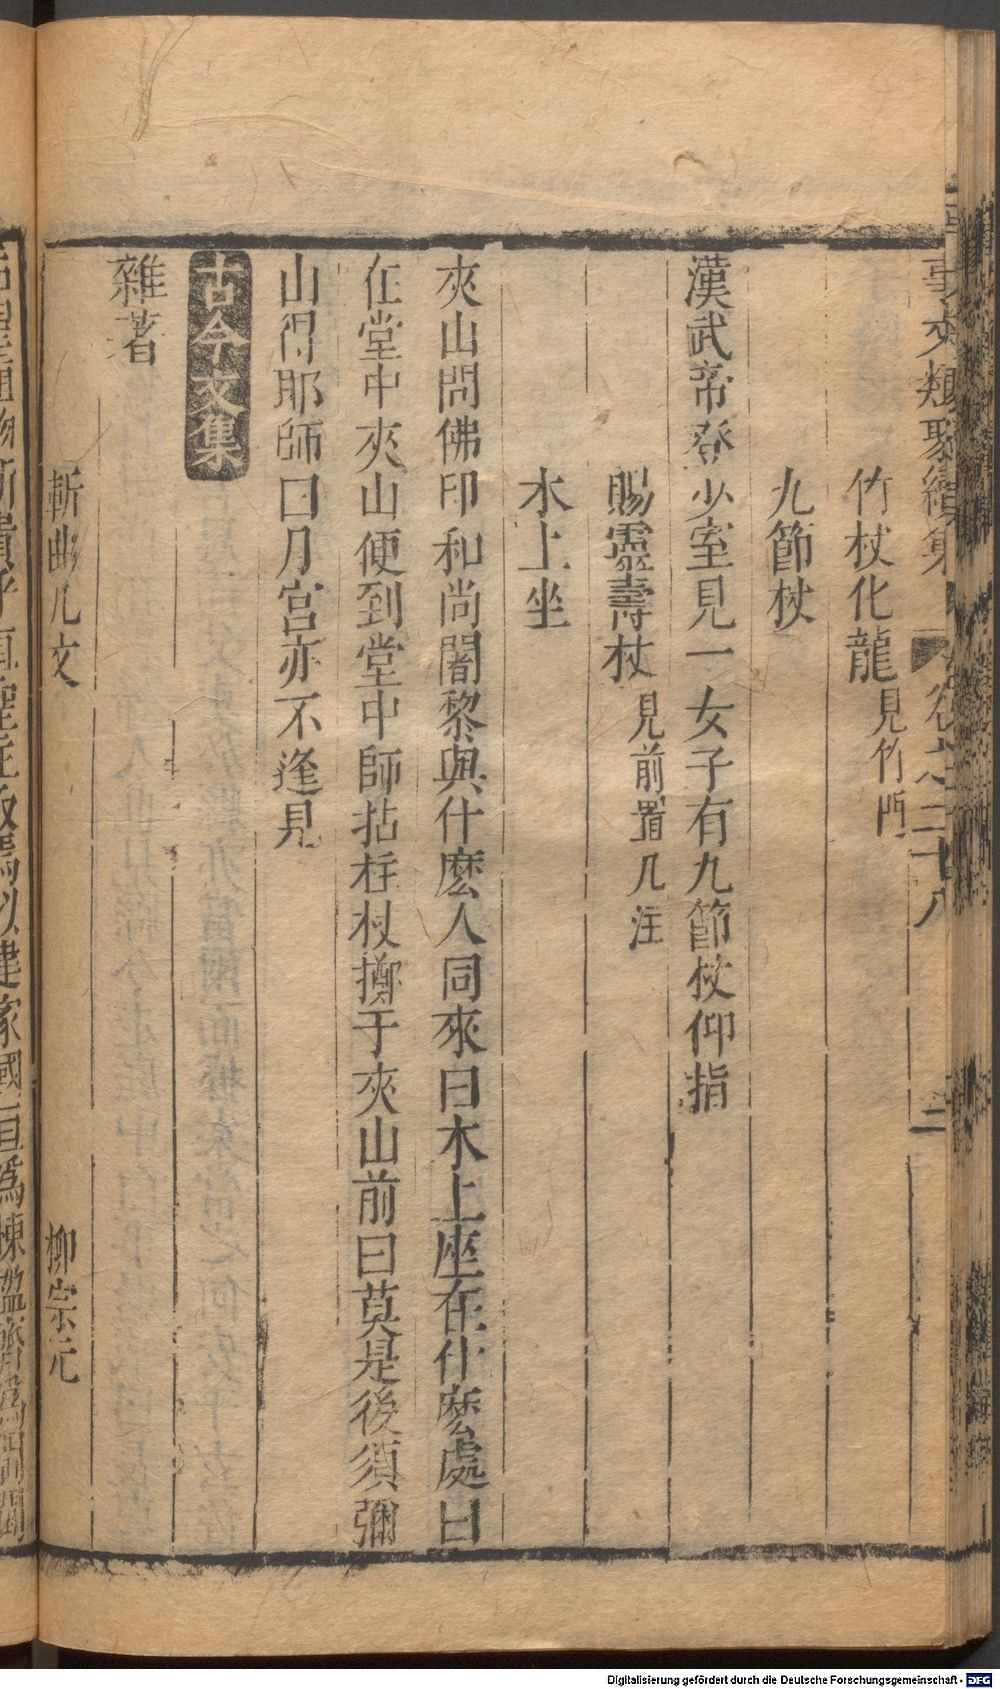 事文類聚續集 卷之二十八 二
竹杖化龍見竹門
九節杖
漢武帝登少室見一女子有九節杖仰指
賜靈壽杖見前置几注
木上坐
夾山問佛印和尚闍黎與什麽人同來曰木上座在什麽處曰
在堂中夾山便到堂中師拈柱杖擲于夾山前曰莫是後須彌
山得耶師曰月宮亦不逢見
古今文集
雜著
斬曲几文 柳宗元
Digitalisierung gefördert durch die Deutsche Forschungsgemeinschaft - DFG